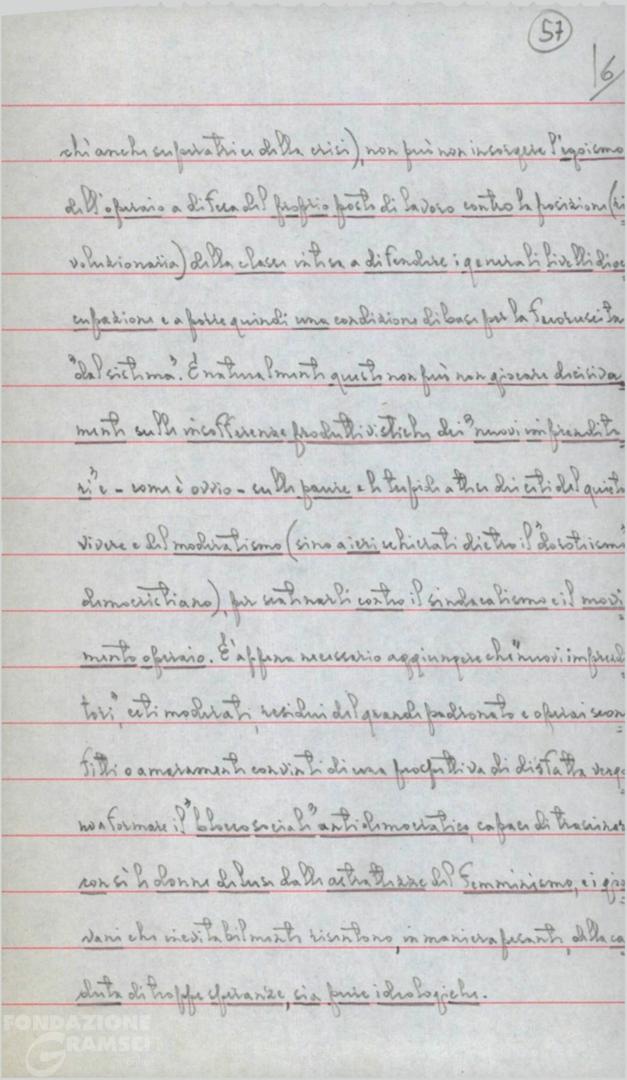 57
16
chi anche superatrice della crisi), non può non insorgere l'egoismo
dell'operaio a difesa del proprio posto di lavoro contro la posizione (ri
voluzionaria) della classe intesa a difendere i generali livelli di oc
cupazione e a porre quindi una condizione di base per la fuoruscita
"dal sistema". È naturalmente questo non può non giocare decisiva
mente sulle insofferenze produttivistiche dei "nuovi imprendito
ri" e - come è ovvio - sulle paure e le tropide attese dei ceti del quieto
vivere e del moderatismo (sino a ieri schierati dietro il
democristiano), per scatenarli contro il sindacalismo e il movi
mento operaio. È appena necessario aggiungere che "nuovi imprendi
tori", ceti moderati, residui del grande padronato e operai scon
fitti o amaramente convinti di una prospettiva di disfatta verge
no a formare il "blocco sociale" antidemocratico, capace di trascinar
con sé le donne deluse dalle astrattezze del femminismo, e i gio
vani che inevitabilmente risentono, in maniera pesante, della ca
duta di troppe speranze, sia pure ideologiche.
FONDAZIONE
GRAMSCI